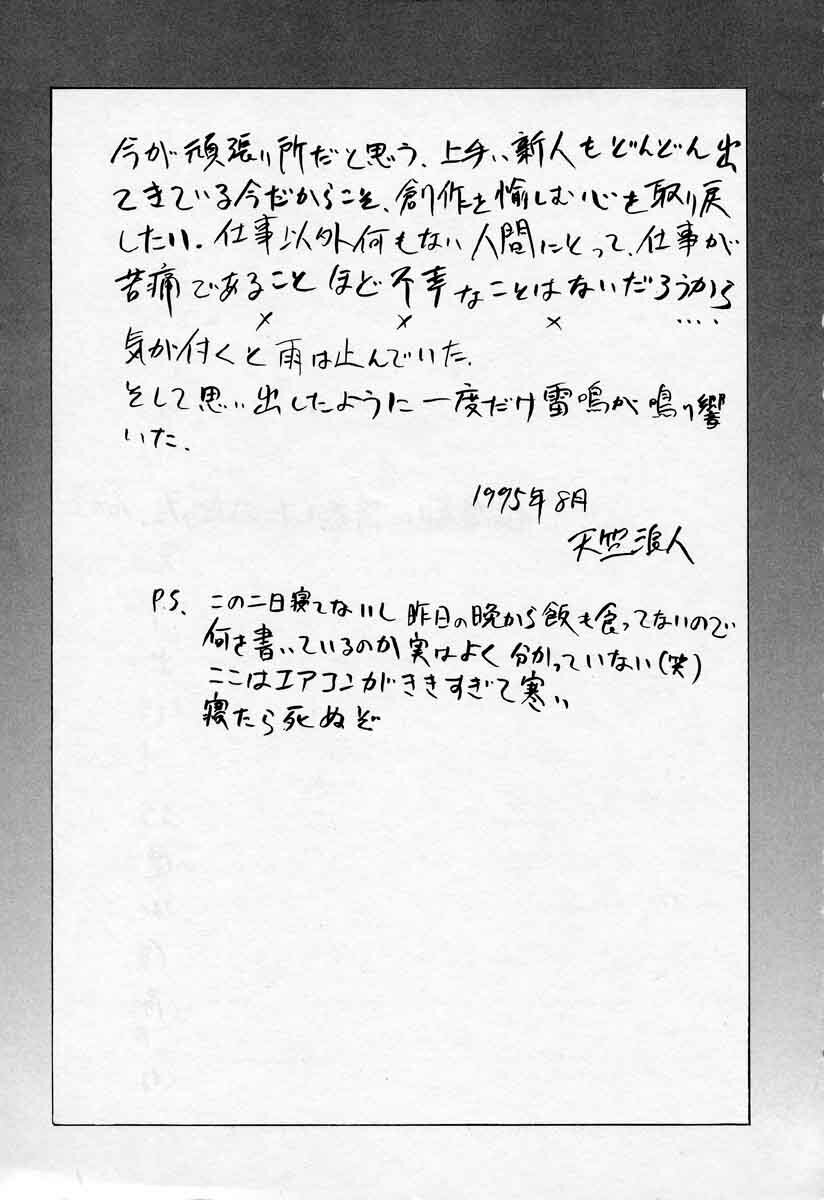 今が頑張り所だと思う、上手い新人もどんどん出
てきている今だからこそ、創作を愉しむ心を取り戻
したい。仕事以外何もない人間にとって、仕事が
苦痛であることほど不幸なことはないだろうから
× × × ‥‥
気が付くと雨は止んでいた。
そして思い出したように一度だけ雷鳴が鳴り響
いた。
1995年8月
天竺浪人
P.S. この二日寝てないし昨日の晩から飯も食ってないので
何を書いているのか実はよく分かっていない(笑)
ここはエアコンがききすぎて寒い
寝たら死ぬぞ